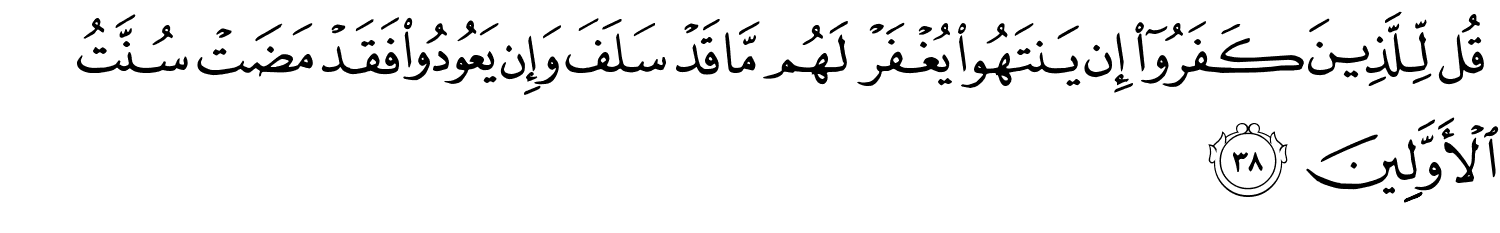 قُل لِّلَّذِينَ كَفَرُوٓا۟ إِن يَنتَهُوا۟ يُغْفَرْ لَهُم مَّا قَدْ سَلَفَ وَإِن يَعُودُوا۟ فَقَدْ مَضَتْ سُنَّتُ
ٱلْأَوَّلِينَ ٣٨